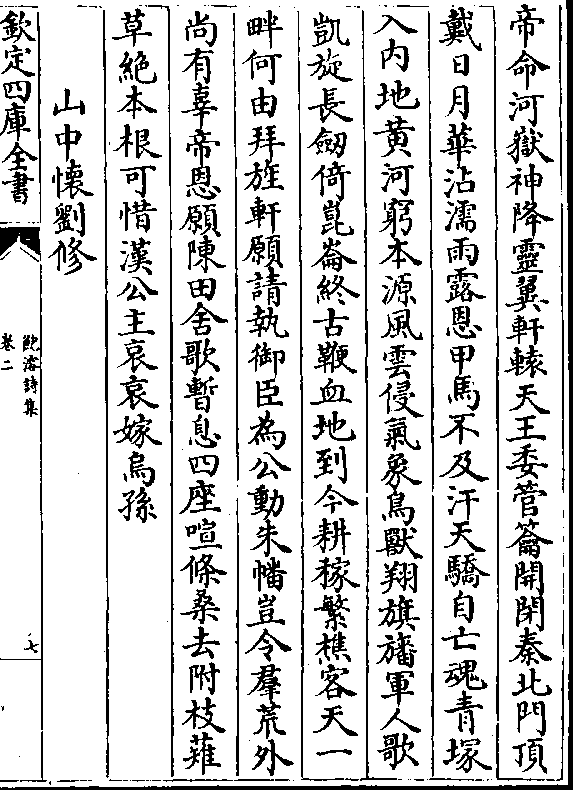 帝命河嶽神降靈翼軒轅天王委管籥開閉秦北門頂
戴日月華沾濡雨露恩甲馬不及汗天驕自亡魂青塚
入內地黃河窮本源風雲侵氣象鳥獸翔旗旛軍人歌
凱旋長劒倚崑崙終古鞭血地到今耕稼繁樵客天一
畔何由拜旌軒願請執御臣為公動朱幡豈令羣荒外
尚有辜帝恩願陳田舍歌暫息四座喧條桑去附枝薙
草絶本根可惜漢公主哀哀嫁烏孫
山中懷劉修
欽定四庫全書
鮑溶詩集
卷二
七